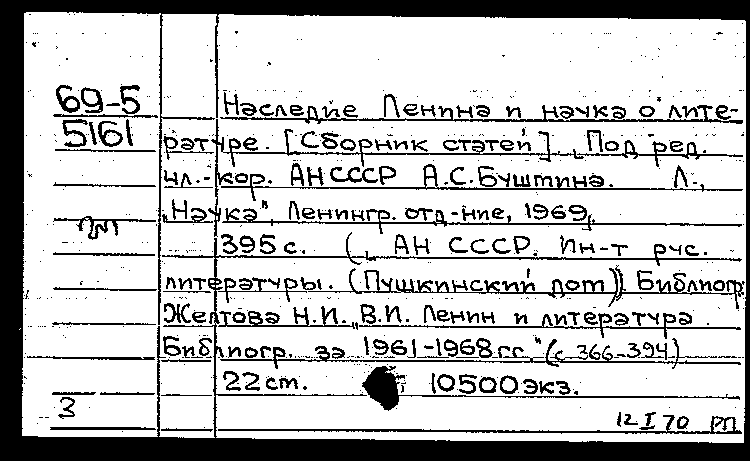 69-5 Наследие Ленина и наука о лите-
5161 ратуре. [Сборник статей]. Под ред.
чл.-кор. АН СССР А.С.Буштина. Л.,
"Наука", Ленингр. отд-ние, 1969.
395 с. (АН СССР. Ин-т рус.
литературы. (Пушкинский дом)) Библиогр.
Желтова Н.И. "В.И. Ленин и литература
Библиогр. за 1961-1968 гг." (с 366-394)
22 ст. 10500 экз.
3 12 I 70 РП